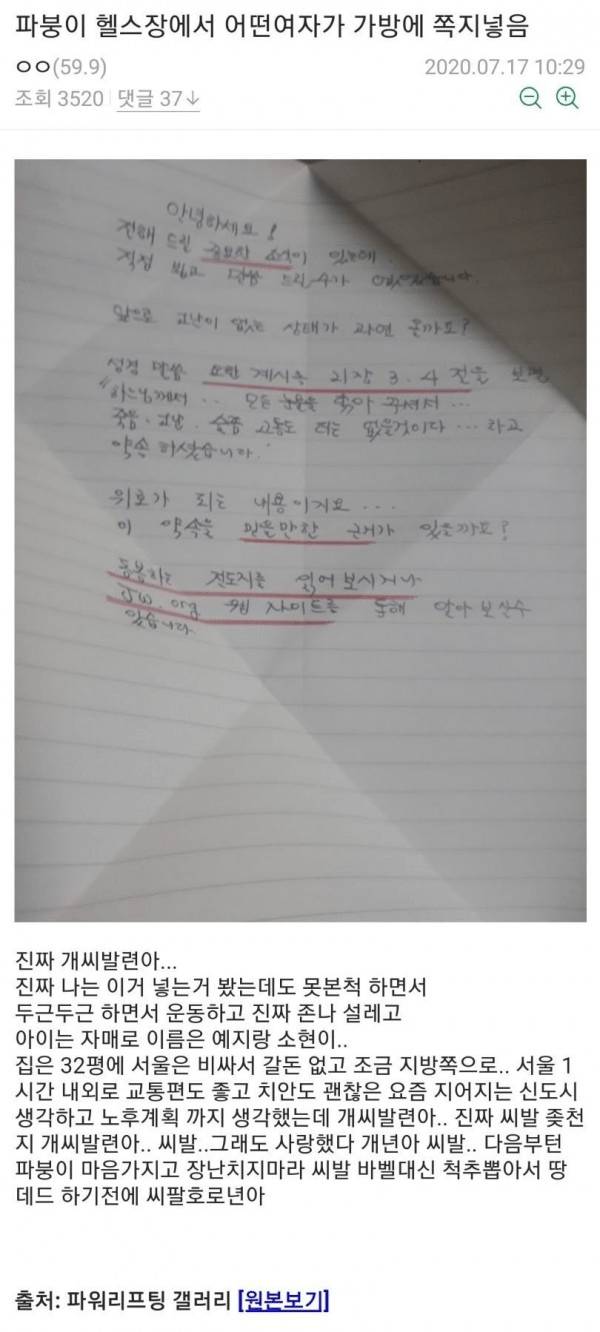 파붕이 헬스장에서 어떤여자가 가방에 쪽지넣음
ㅇㅇ(59.9)
2020.07.17 10:29
조회 3520 댓글 37↓
안녕하세요!
전해 드릴 중요한 소식이 있는데
직접 뵙고 말씀 드릴수가 없었습니다.
앞으로 고난이 없는 상태가 과연 올까요?
성경 말씀 요한 계시록 21장 3.4 절을 보면
"하느님께서 .. 모든 눈물을 닦아 주셔서 ...
죽음. 고난. 슬픔 고통도 더는 없을것이다 ... 라고
약속 하셨습니다.
위로가 되는 내용이지요 ...
이 약속을 믿을만한 근거가 있을까요?
동봉하는 전도지를 읽어 보시거나
JW.org 웹 사이트를 통해 알아 보실수
있습니다
진짜 개씨발련아...
진짜 나는 이거 넣는거 봤는데도 못본척 하면서
두근두근 하면서 운동하고 진짜 존나 설레고
아이는 자매로 이름은 예지랑 소현이..
집은 32평에 서울은 비싸서 갈돈 없고 조금 지방쪽으로.. 서울 1
시간 내외로 교통편도 좋고 치안도 괜찮은 요즘 지어지는 신도시
생각하고 노후계획 까지 생각했는데 개씨발련아.. 진짜 씨발 좆천
지 개씨발련아.. 씨발..그래도 사랑했다 개년아 씨발.. 다음부턴
파붕이 마음가지고 장난치지마라 씨발 바벨대신 척추뽑아서 땅
데드 하기전에 씨팔호로년아
출처: 파워리프팅 갤러리 [원본보기]